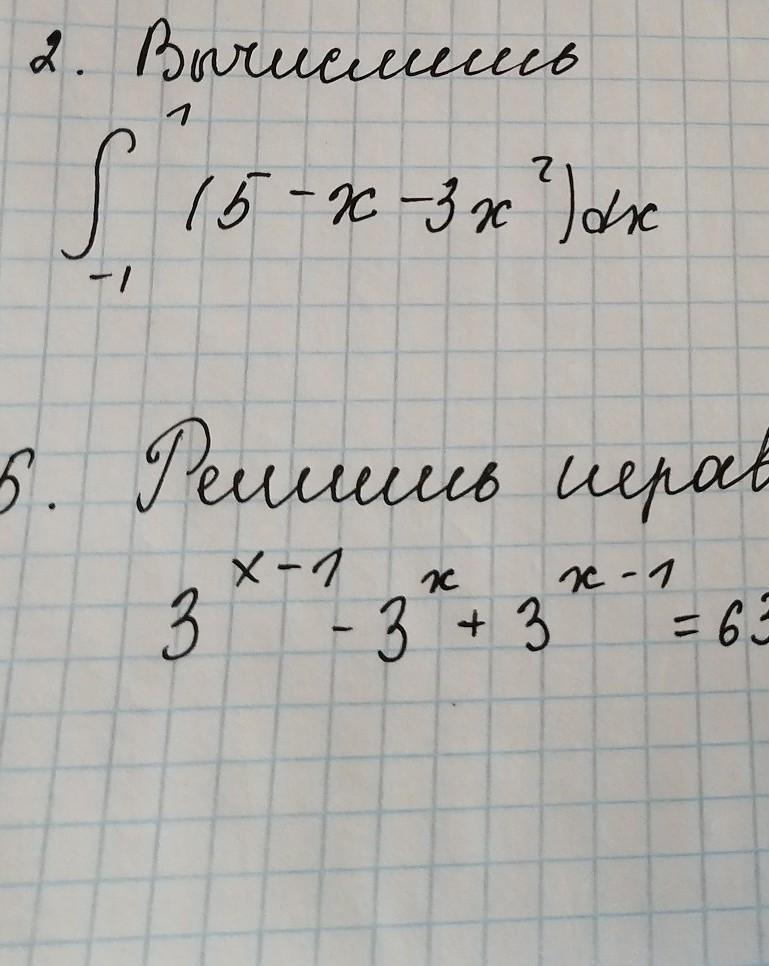 2. Вычислить
∫₋₁¹ (5 - x - 3x²)dx
5. Решить нерав
3^(x-1) - 3^x + 3^(x-1) = 63